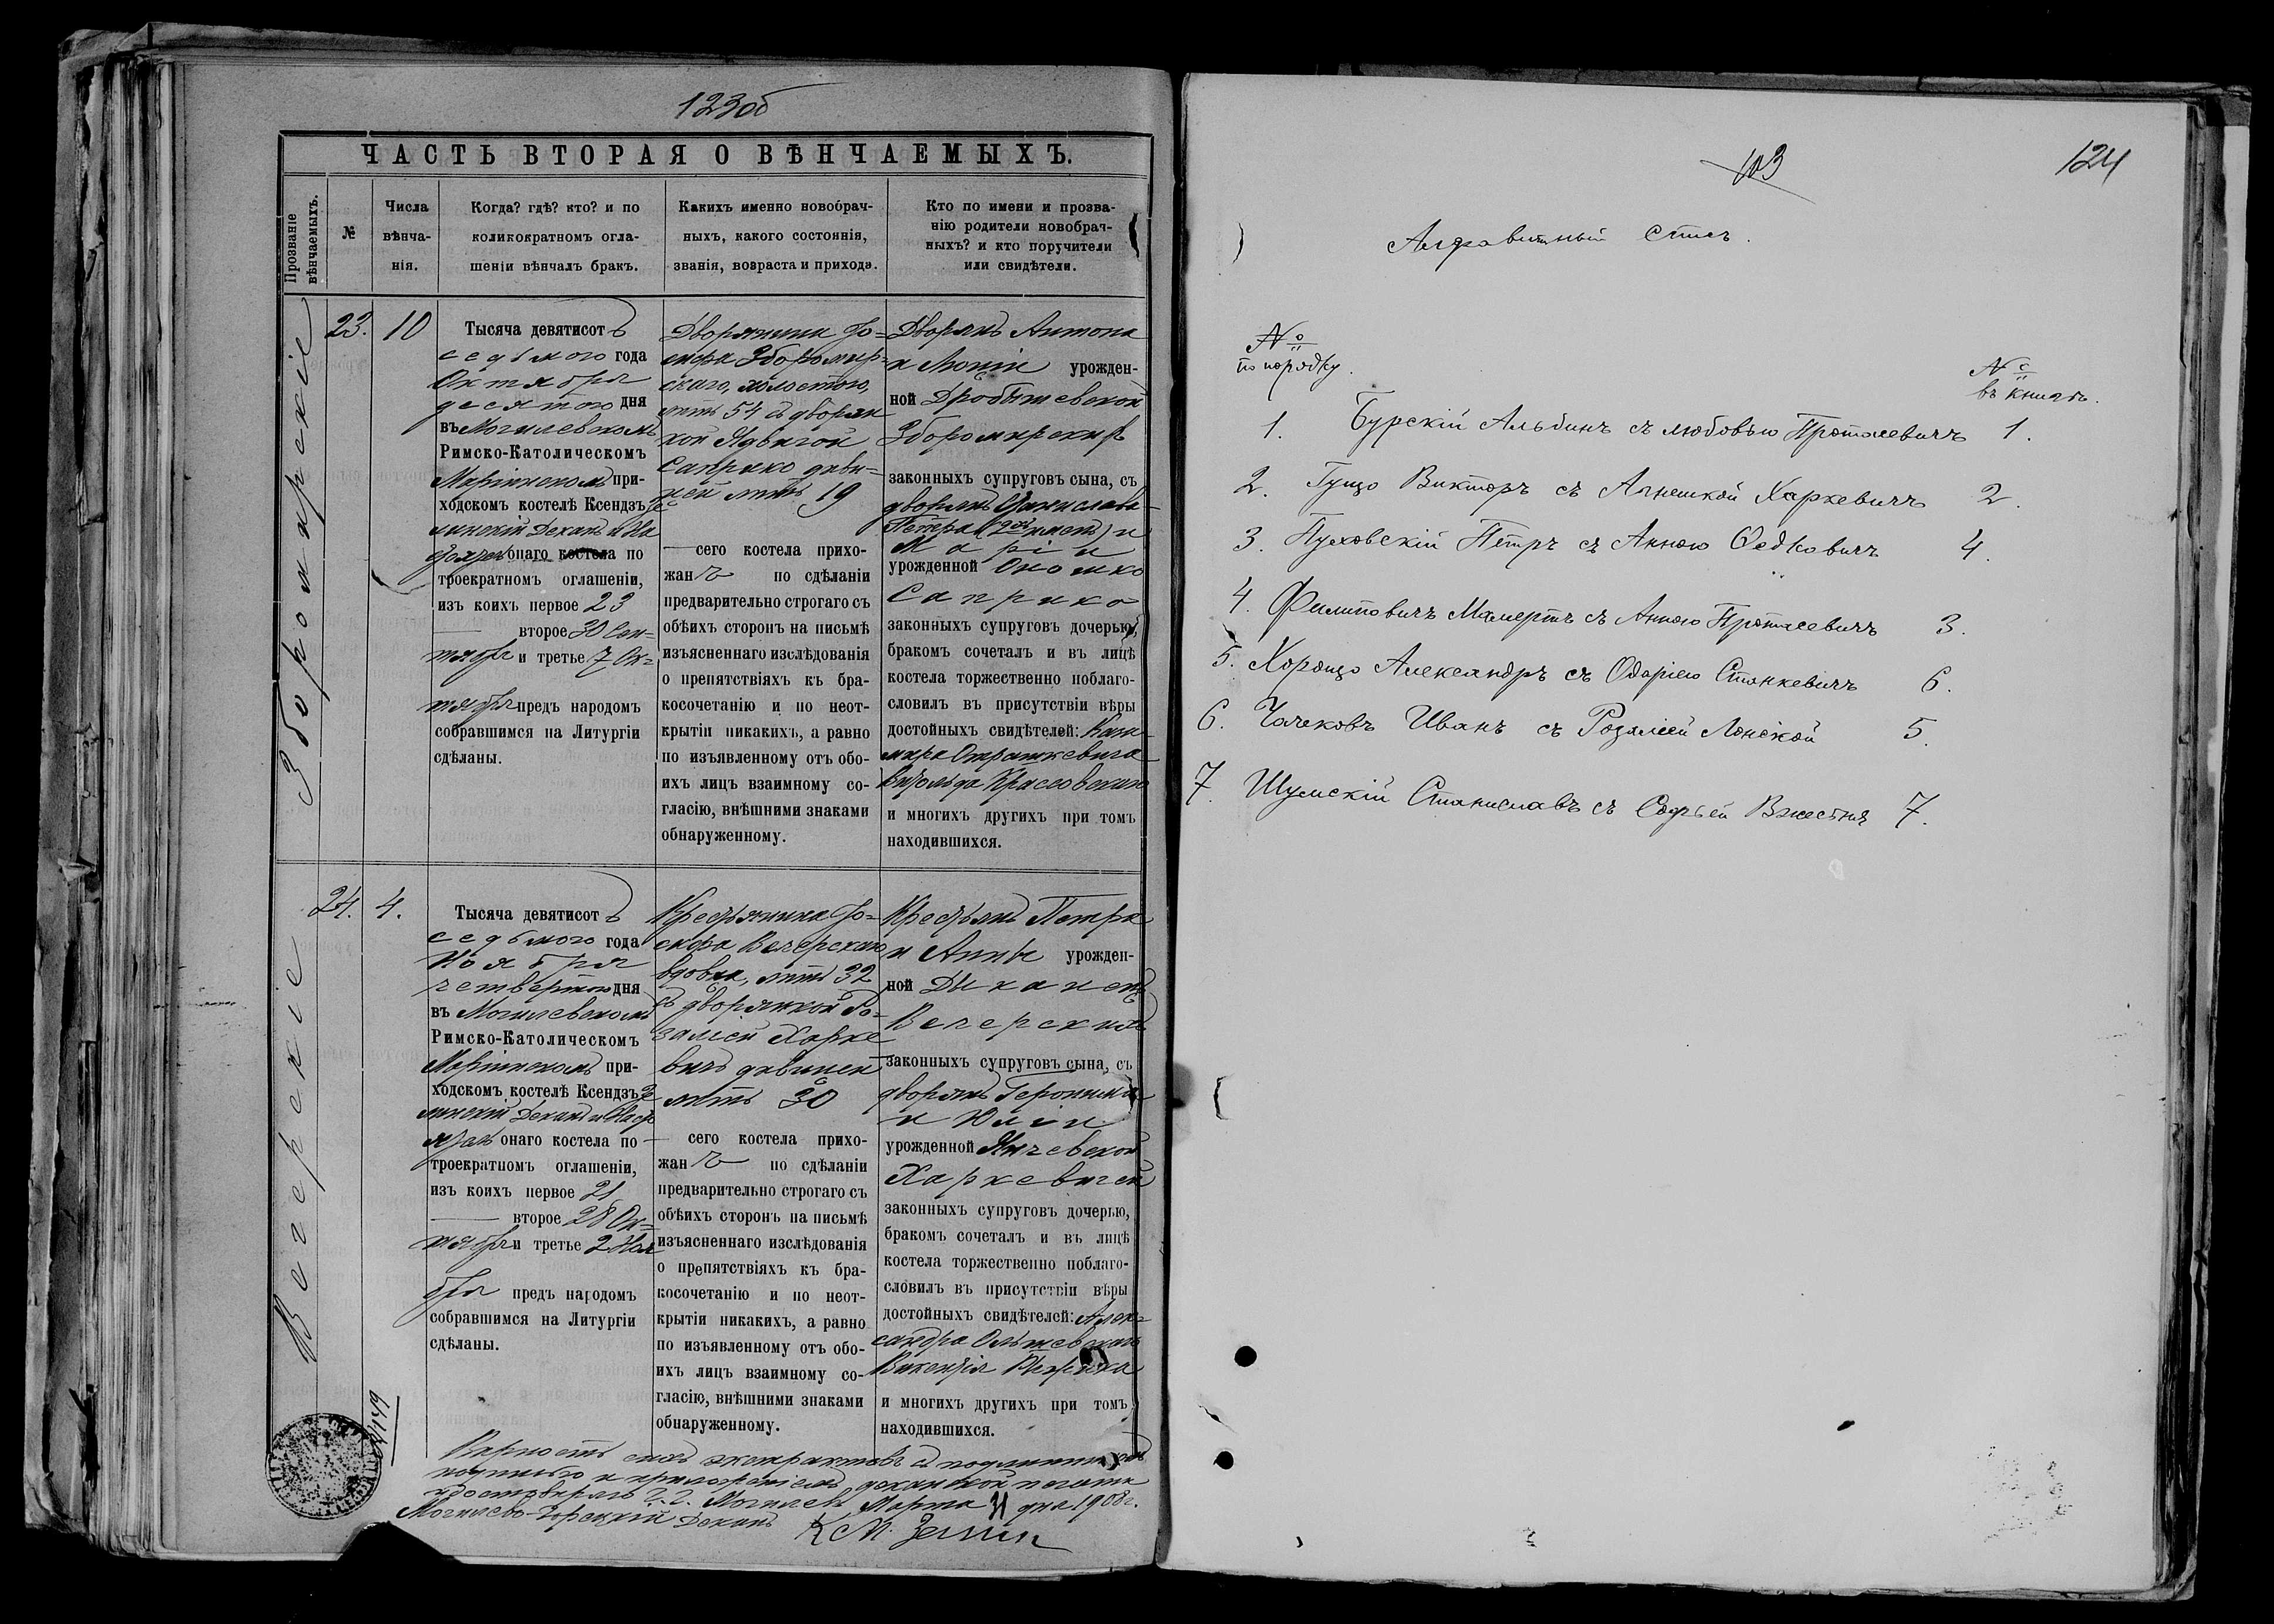 123об
ЧАСТЬ ВТОРАЯ О ВѢНЧАЕМЫХЪ.
Прозваніе вѣнчаемыхъ.
№
Числа
вѣнча-
нія.
Когда? гдѣ? кто? и по
коликократномъ огла-
шеніи вѣнчалъ бракъ.
Какихъ именно новобрач-
ныхъ, какого состоянія,
званія, возраста и прихода.
Кто по имени и прозва-
нію родители новобрач-
ныхъ? и кто поручители
или свидѣтели.
Збромирскіе
23.
10
Тысяча девятисотъ
седьмого года
Октября
десятого дня
въ Могилевскомъ
Римско-Католическомъ
Маріинскомъ при-
ходскомъ костелѣ Ксендзъ
Деканъ и На
онаго костела по
троекратномъ оглашеніи,
изъ коихъ первое 23
второе 30 Сен-
тября и третье 7 Ок-
тября предъ народомъ
собравшимся на Литургіи
сдѣланы.
Дворянина Іо-
сифа Збромир-
скаго, холостого,
лѣтъ 54 съ дворян
кой Ядвигой
Сапрыко дѣви-
цей лѣтъ 19
сего костела прихо-
жанъ по сдѣланіи
предварительно строгаго съ
обѣихъ сторонъ на письмѣ
изъясненнаго изслѣдованія
о препятствіяхъ къ бра-
косочетанію и по неот-
крытіи никакихъ, а равно
по изъявленному отъ обо-
ихъ лицъ взаимному со-
гласію, внѣшними знаками
обнаруженному.
Дворянъ Антона
и урожден-
ной Дробышевской
Збромирскихъ
законныхъ супруговъ сына, съ
дворянъ Станислава-
Петра (2хъ именъ) и
Маріи
урожденной
Саприко
законныхъ супруговъ дочерью,
бракомъ сочеталъ и въ лицѣ
костела торжественно поблаго-
словилъ въ присутствіи вѣры
достойныхъ свидѣтелей: Кази-
мира
Витольда Красовскаго
и многихъ другихъ при томъ
находившихся.
Вечерскіе
24.
4.
Тысяча девятисотъ
седьмого года
Ноября
четвертого дня
въ Могилевскомъ
Римско-Католическомъ
Маріинскомъ при-
ходскомъ костелѣ Ксендзъ
Деканъ и
онаго костела по
троекратномъ оглашеніи,
изъ коихъ первое 21
второе 28 Ок-
тября и третье 2 Ноя
бря предъ народомъ
собравшимся на Литургіи
сдѣланы.
Крестьянина Іо-
сифа Вечерскаго
вдовца, лѣтъ 32
съ дворянкой Ро-
заліей Харке
вичъ дѣвицей
лѣтъ 30
сего костела прихо-
жанъ по сдѣланіи
предварительно строгаго съ
обѣихъ сторонъ на письмѣ
изъясненнаго изслѣдованія
о препятствіяхъ къ бра-
косочетанію и по неот-
крытіи никакихъ, а равно
по изъявленному отъ обо-
ихъ лицъ взаимному со-
гласію, внѣшними знаками
обнаруженному.
Крестьянъ Петра
и Анны урожден-
ной
Вечерскихъ
законныхъ супруговъ сына, съ
дворянъ Геронима
и Юліи
урожденной Янчевской
Харкевичей
законныхъ супруговъ дочерью,
бракомъ сочеталъ и въ лицѣ
костела торжественно поблаго-
словилъ въ присутствіи вѣры
достойныхъ свидѣтелей: Алек-
сандра Ольшевскаго
Викентія
и многихъ другихъ при томъ
находившихся.
№149
Вѣрность сихъ экстрактовъ съ подлинными
подписью и приложеніемъ деканской печати
удостовѣряю. Г. Могилевъ Марта 31 дня 1908 г.
Могилево-Горецкій Деканъ
124
103
Алфавитный списъ.
№
по порядку.
№
въ книгѣ.
1. Бурскій Альбинъ съ Любовью Протасевичъ 1.
2. Гуцо Викторъ съ Агнешкой Харкевичъ 2.
3. Пуховскій Петръ съ Анною Федковичъ 4.
4. Филиповичъ Мамертъ съ Анною Протасевичъ 3.
5. Хорощо Александръ съ Одаріею Станкевичъ 6.
6. Чачковъ Иванъ съ Розаліей Лонской 5.
7. Шумскій Станиславъ съ Софьей 7.